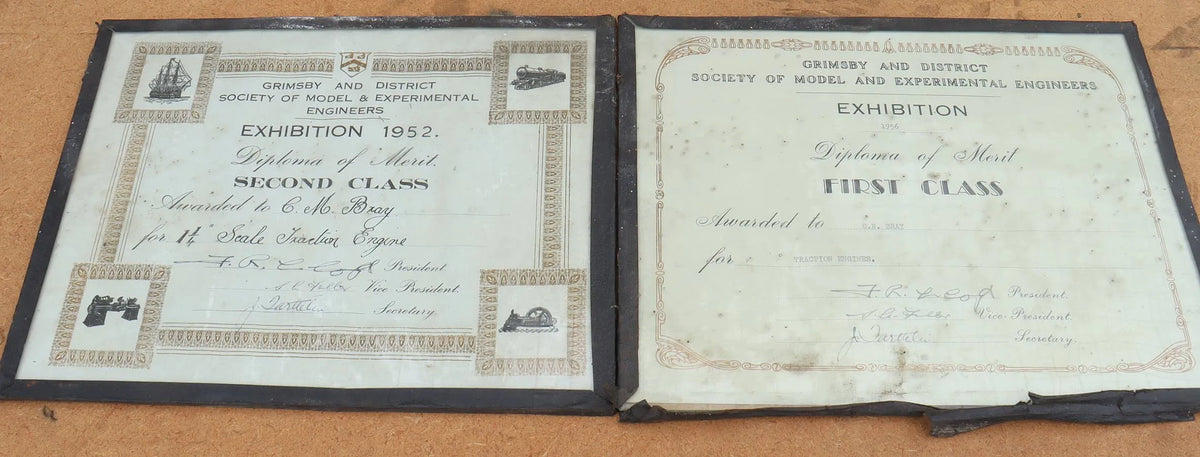 GRIMSBY AND DISTRICT
SOCIETY OF MODEL & EXPERIMENTAL
ENGINEERS
EXHIBITION 1952.
Diploma of Merit.
SECOND CLASS
Awarded to C. M. Bray
for 1¼" Scale Traction Engine
F. R. President
Vice President.
J. Secretary.
GRIMSBY AND DISTRICT
SOCIETY OF MODEL AND EXPERIMENTAL ENGINEERS
EXHIBITION
1956
Diploma of Merit
FIRST CLASS
Awarded to BRAY
for TRACTION ENGINES.
F. R. President.
Vice-President.
J. Secretary.